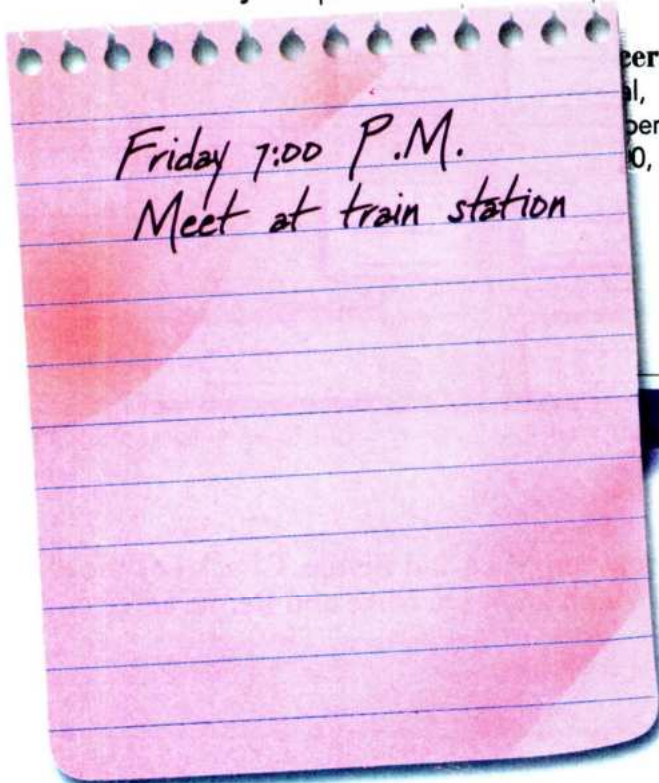 Friday 7:00 P.M.
Meet at train station